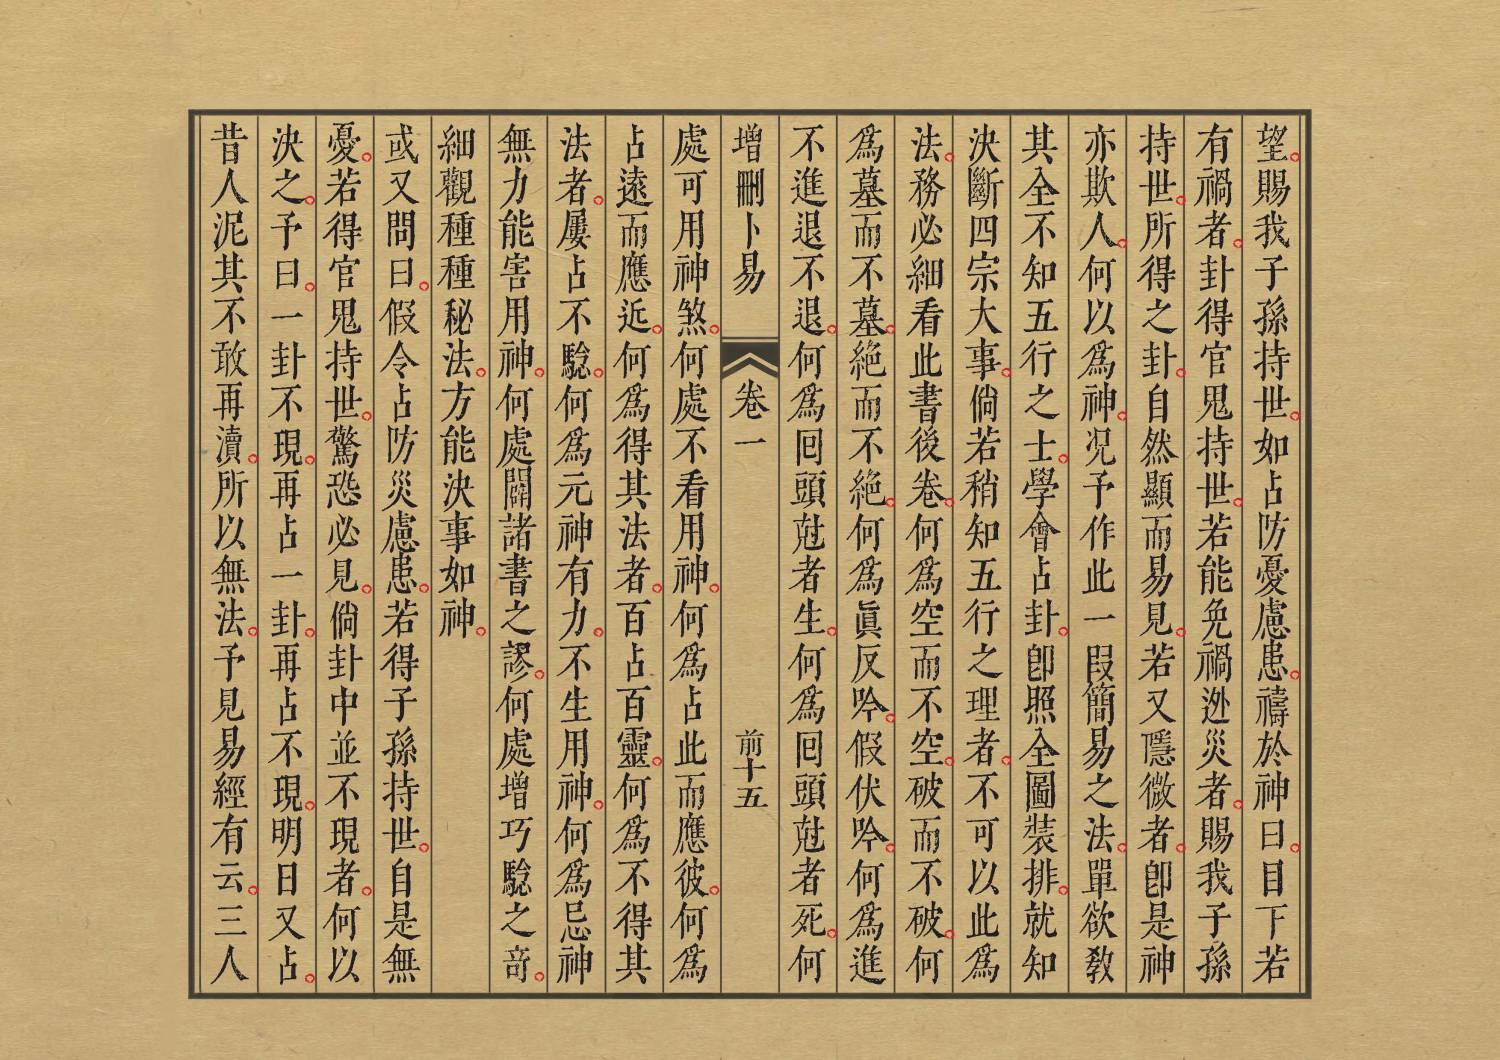 望。賜我子孫持世。如占防憂慮患。禱於神曰。目下若
有禍者。卦得官鬼持世。若能免禍迯災者。賜我子孫
持世。所得之卦。自然顯而易見。若又隱微者。卽是神
亦欺人。何以爲神。況予作此一段簡易之法。單欲敎
其全不知五行之士。學會占卦。卽照全圖裝排。就知
決斷四宗大事。倘若稍知五行之理者。不可以此爲
法。務必細看此書後卷。何爲空而不空。破而不破。何
爲墓而不墓。絕而不絕。何爲眞反吟。假伏吟。何爲進
不進退不退。何爲回頭尅者生。何爲回頭尅者死。何
增刪卜易 卷一 前十五
處可用神煞。何處不看用神。何爲占此而應彼。何爲
占遠而應近。何爲得其法者。百占百靈。何爲不得其
法者。屢占不驗。何爲元神有力。不生用神。何爲忌神
無力能害用神。何處闢諸書之謬。何處增巧驗之竒。
細觀種種秘法。方能決事如神。
或又問曰。假令占防災慮患。若得子孫持世。自是無
憂。若得官鬼持世。驚恐必見。倘卦中並不現者。何以
決之。予曰。一卦不現。再占一卦。再占不現。明日又占。
昔人泥其不敢再瀆。所以無法。予見易經有云。三人